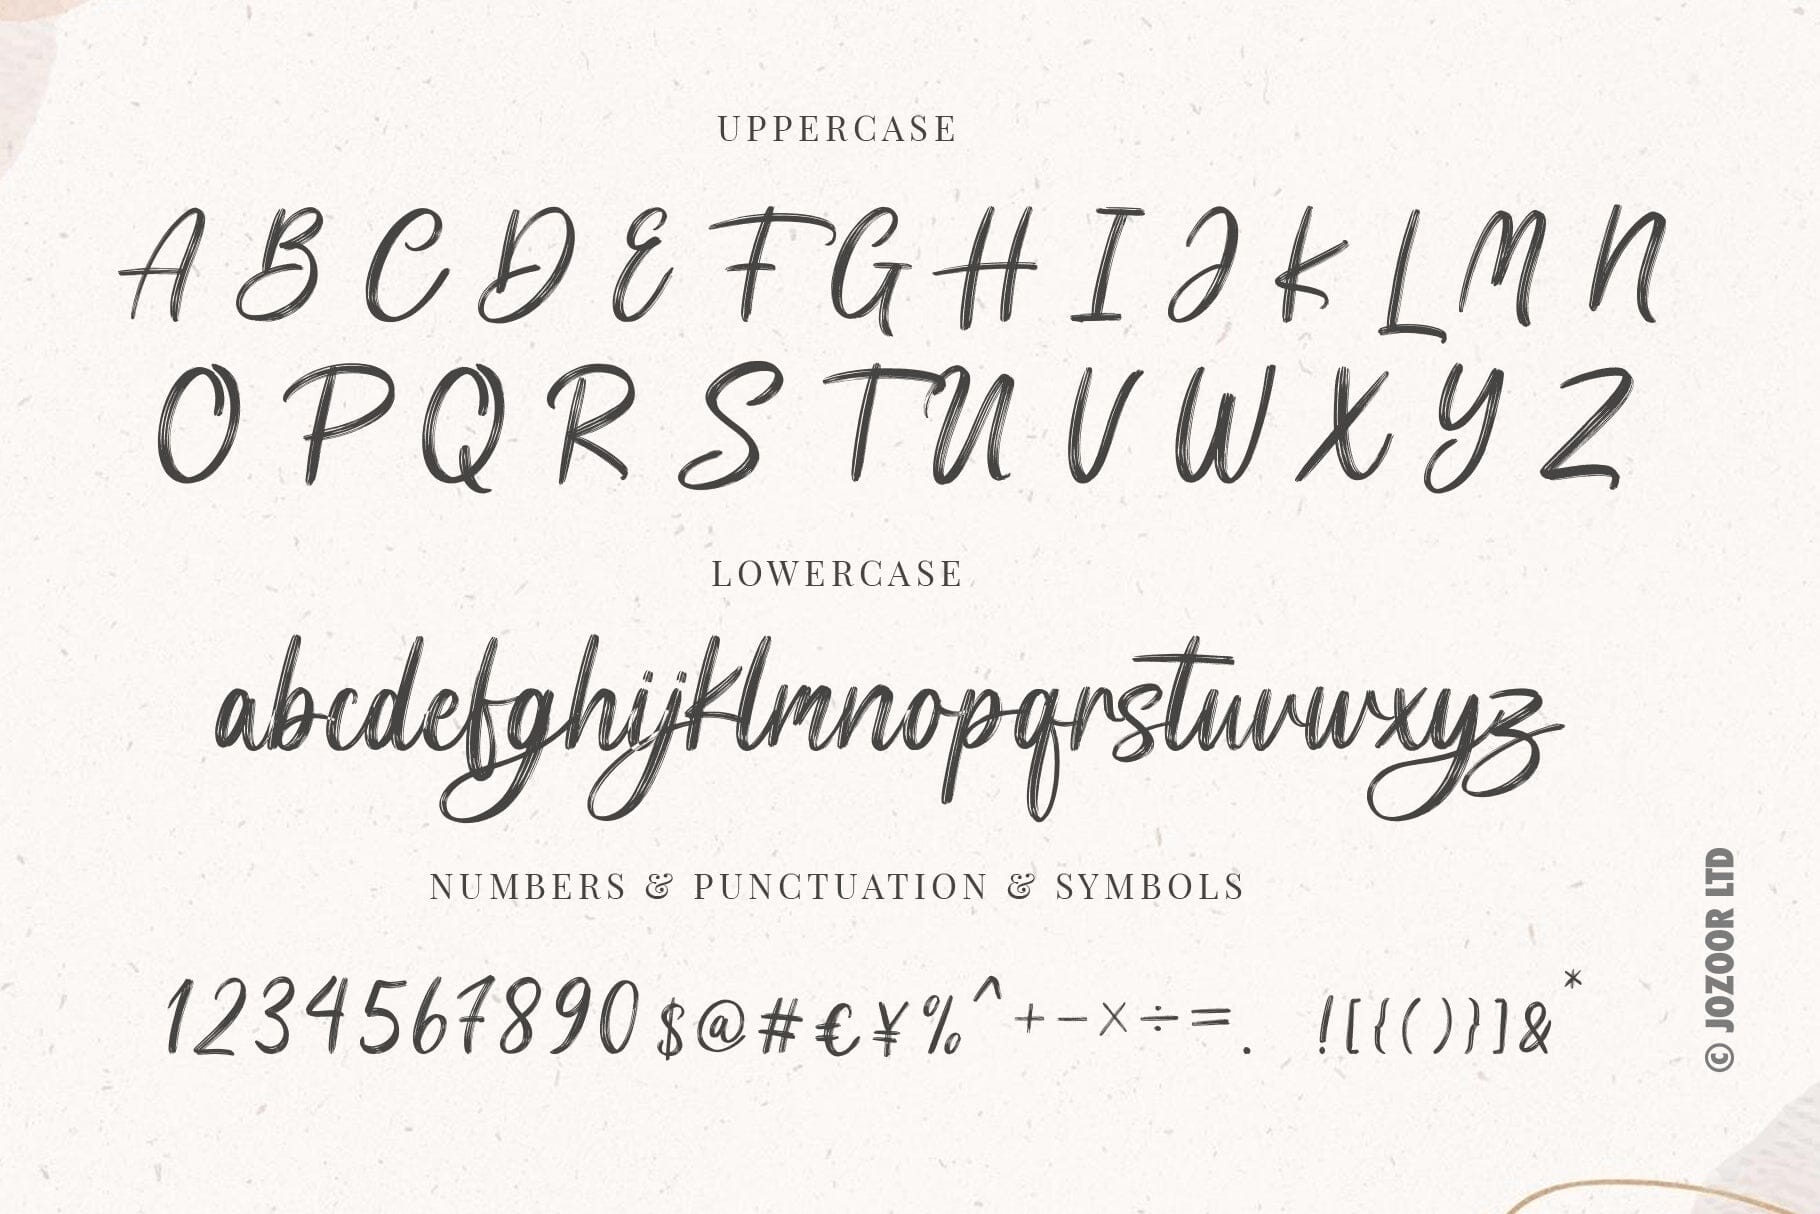 UPPERCASE
A B C D E F G H I J K L M N
O P Q R S T U V W X Y Z
LOWERCASE
abcdefghijklmnopqrstuvwxyz
NUMBERS & PUNCTUATION & SYMBOLS
1234567890$@#€¥%^+−×÷=. ![{()}]&*
© JOZOOR LTD